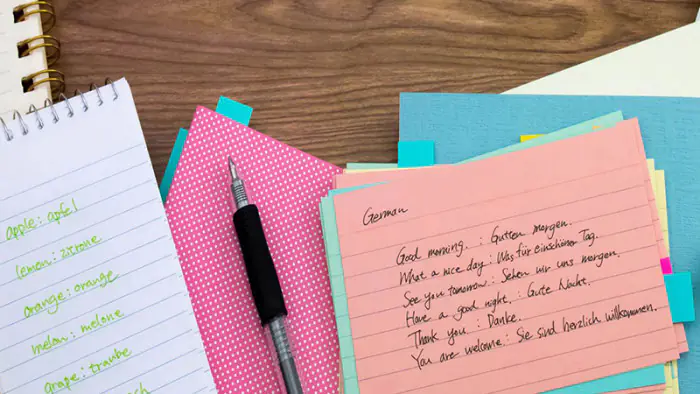 apple: apfel
lemon: zitrone
orange: orange
melon: melone
grape: traube
German
Good morning. : Gutten morgen.
What a nice day: Was für einschöner Tag.
See you tomorrow: Sehen wir uns morgen.
Have a good night. : Gute Nacht.
Thank you. : Danke.
You are welcome: Sie sind herzlich willkommen.